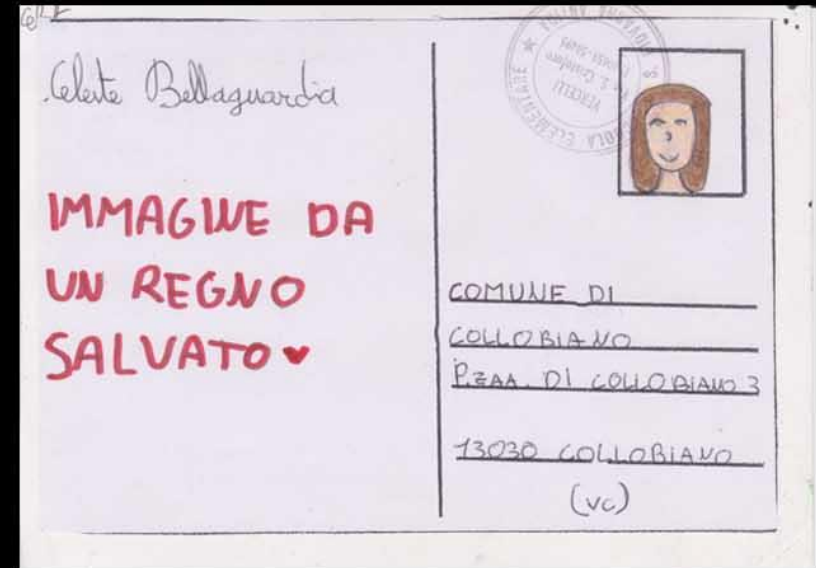 Celeste Bellaguardia
IMMAGINE DA
UN REGNO
SALVATO ♥
SCUOLA ELEMENTARE ★
VERCELLI
COMUNE DI
COLLOBIANO
P.ZAA. DI COLLOBIANO 3
13030 COLLOBIANO
(VC)